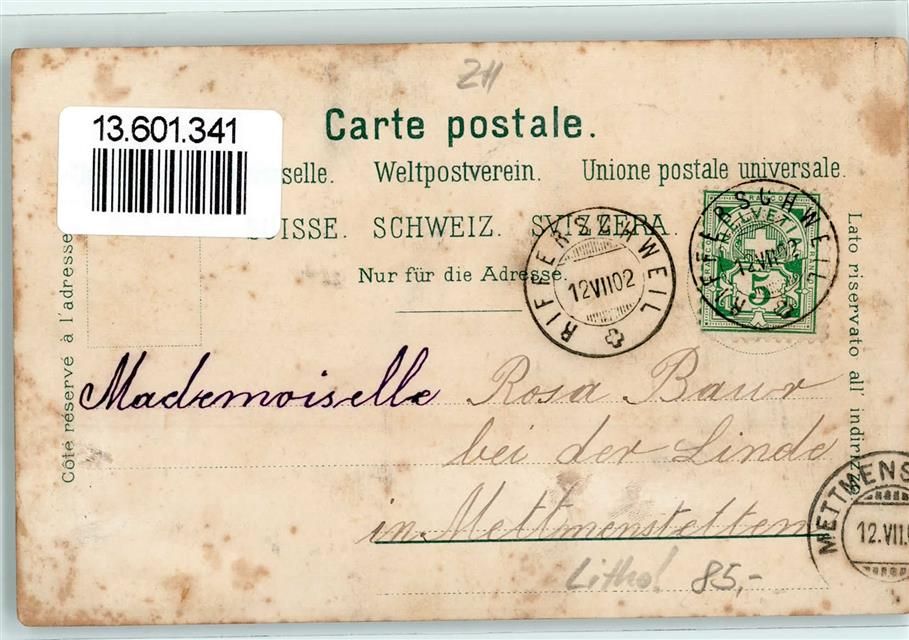 ZH
13.601.341
Carte postale.
selle. Weltpostverein. Unione postale universale.
SUISSE. SCHWEIZ. SVIZZERA.
Nur für die Adresse.
Côté réservé à l'adresse
Lato riservato all' indirizzo
RIFFERSCHWEIL
12 VII 02
RIFFERSCHWEIL
12 VII 02
HELVETIA
5
Mademoiselle Rosa Baur
bei der Linde
in Mettmenstetten
METTMENS
12.VII.
Litho! 85,-